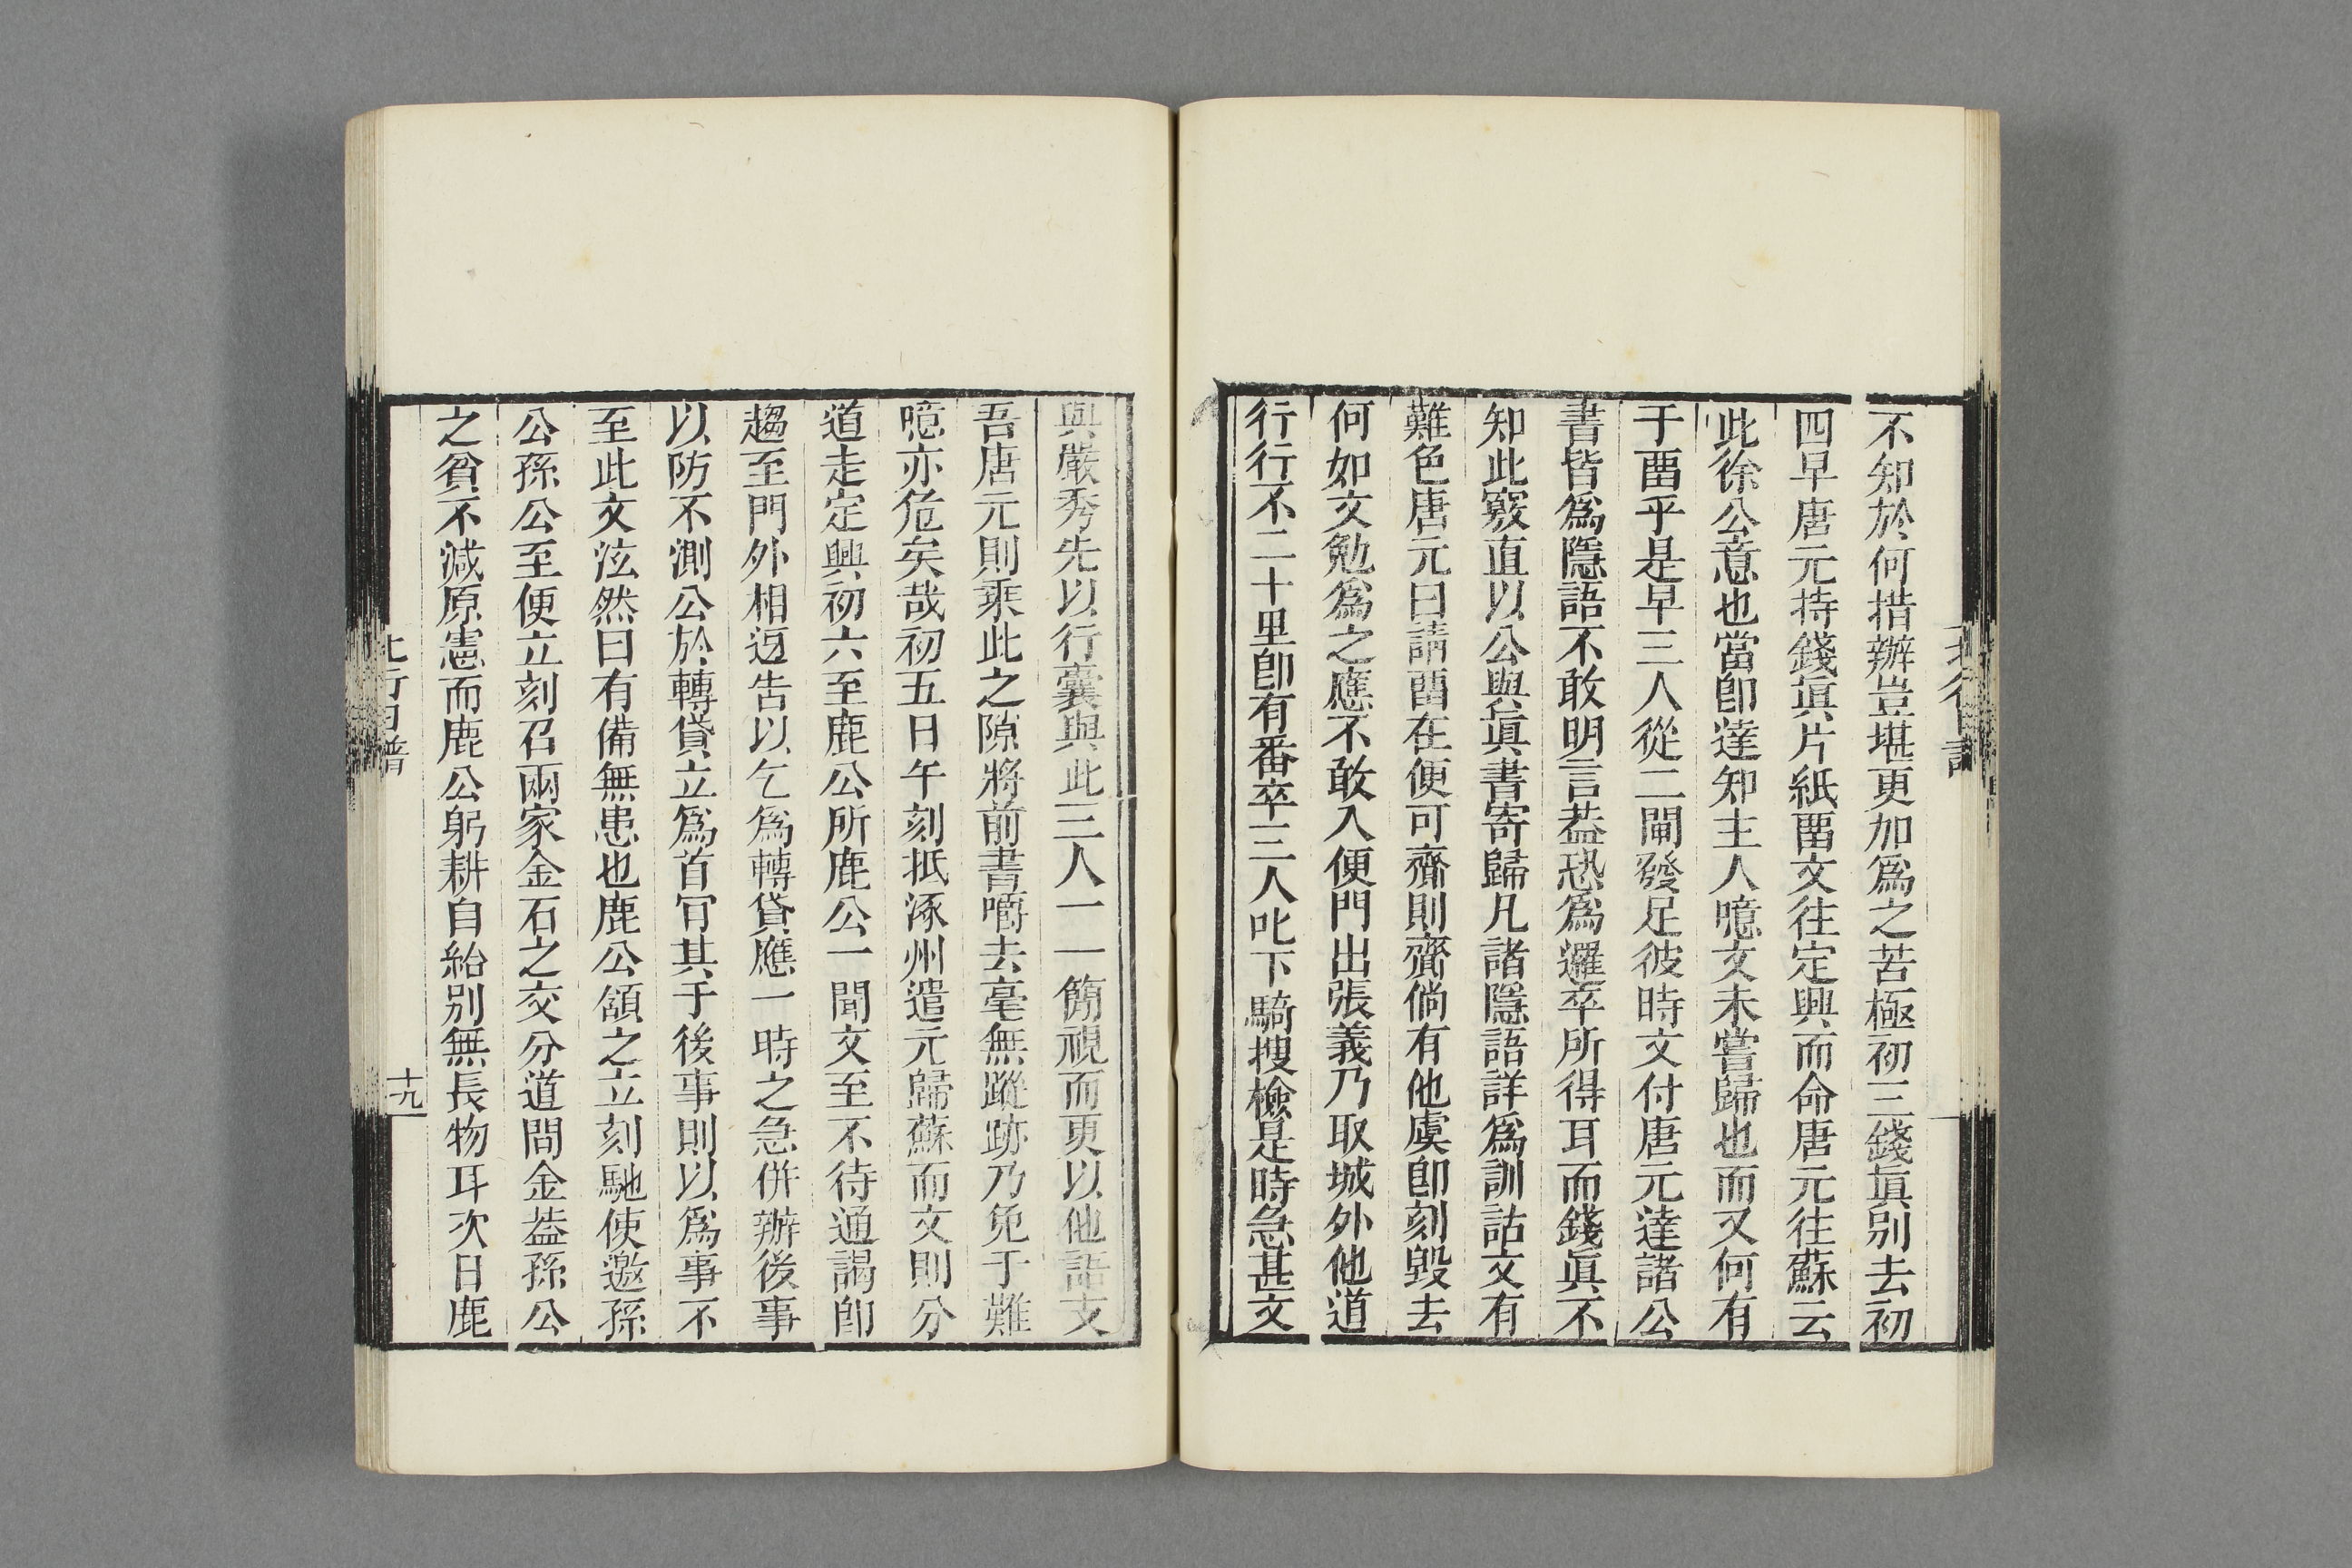 不知於何措辦豈堪更加爲之苦極初三錢眞别去初
四早唐元持錢眞片紙畱文往定興而命唐元往蘇云
此徐公意也當卽達知主人噫文未嘗歸也而又何有
于畱乎是早三人從二閘發足彼時文付唐元達諸公
書皆爲隱語不敢明言葢恐爲邏卒所得耳而錢眞不
知此竅直以公與眞書寄歸凡諸隱語詳爲訓詁文有
難色唐元曰請畱在便可齎則齎倘有他虞卽刻毀去
何如文勉爲之應不敢入便門出張義乃取城外他道
行行不二十里卽有番卒三人叱下騎搜檢是時急甚文
與嚴秀先以行囊與此三人一一簡視而更以他語支
吾唐元則乘此之隙將前書嚼去毫無蹤跡乃免于難
噫亦危矣哉初五日午刻抵涿州遣元歸蘇而文則分
道走定興初六至鹿公所鹿公一聞文至不待通謁卽
趨至門外相迓告以乞爲轉貸應一時之急併辦後事
以防不測公於轉貸立爲首肎其于後事則以爲事不
至此文泫然曰有備無患也鹿公頷之立刻馳使邀孫
公孫公至便立刻召兩家金石之交分道問金葢孫公
之貧不減原憲而鹿公躬耕自給别無長物耳次日鹿
北行日譜
十九